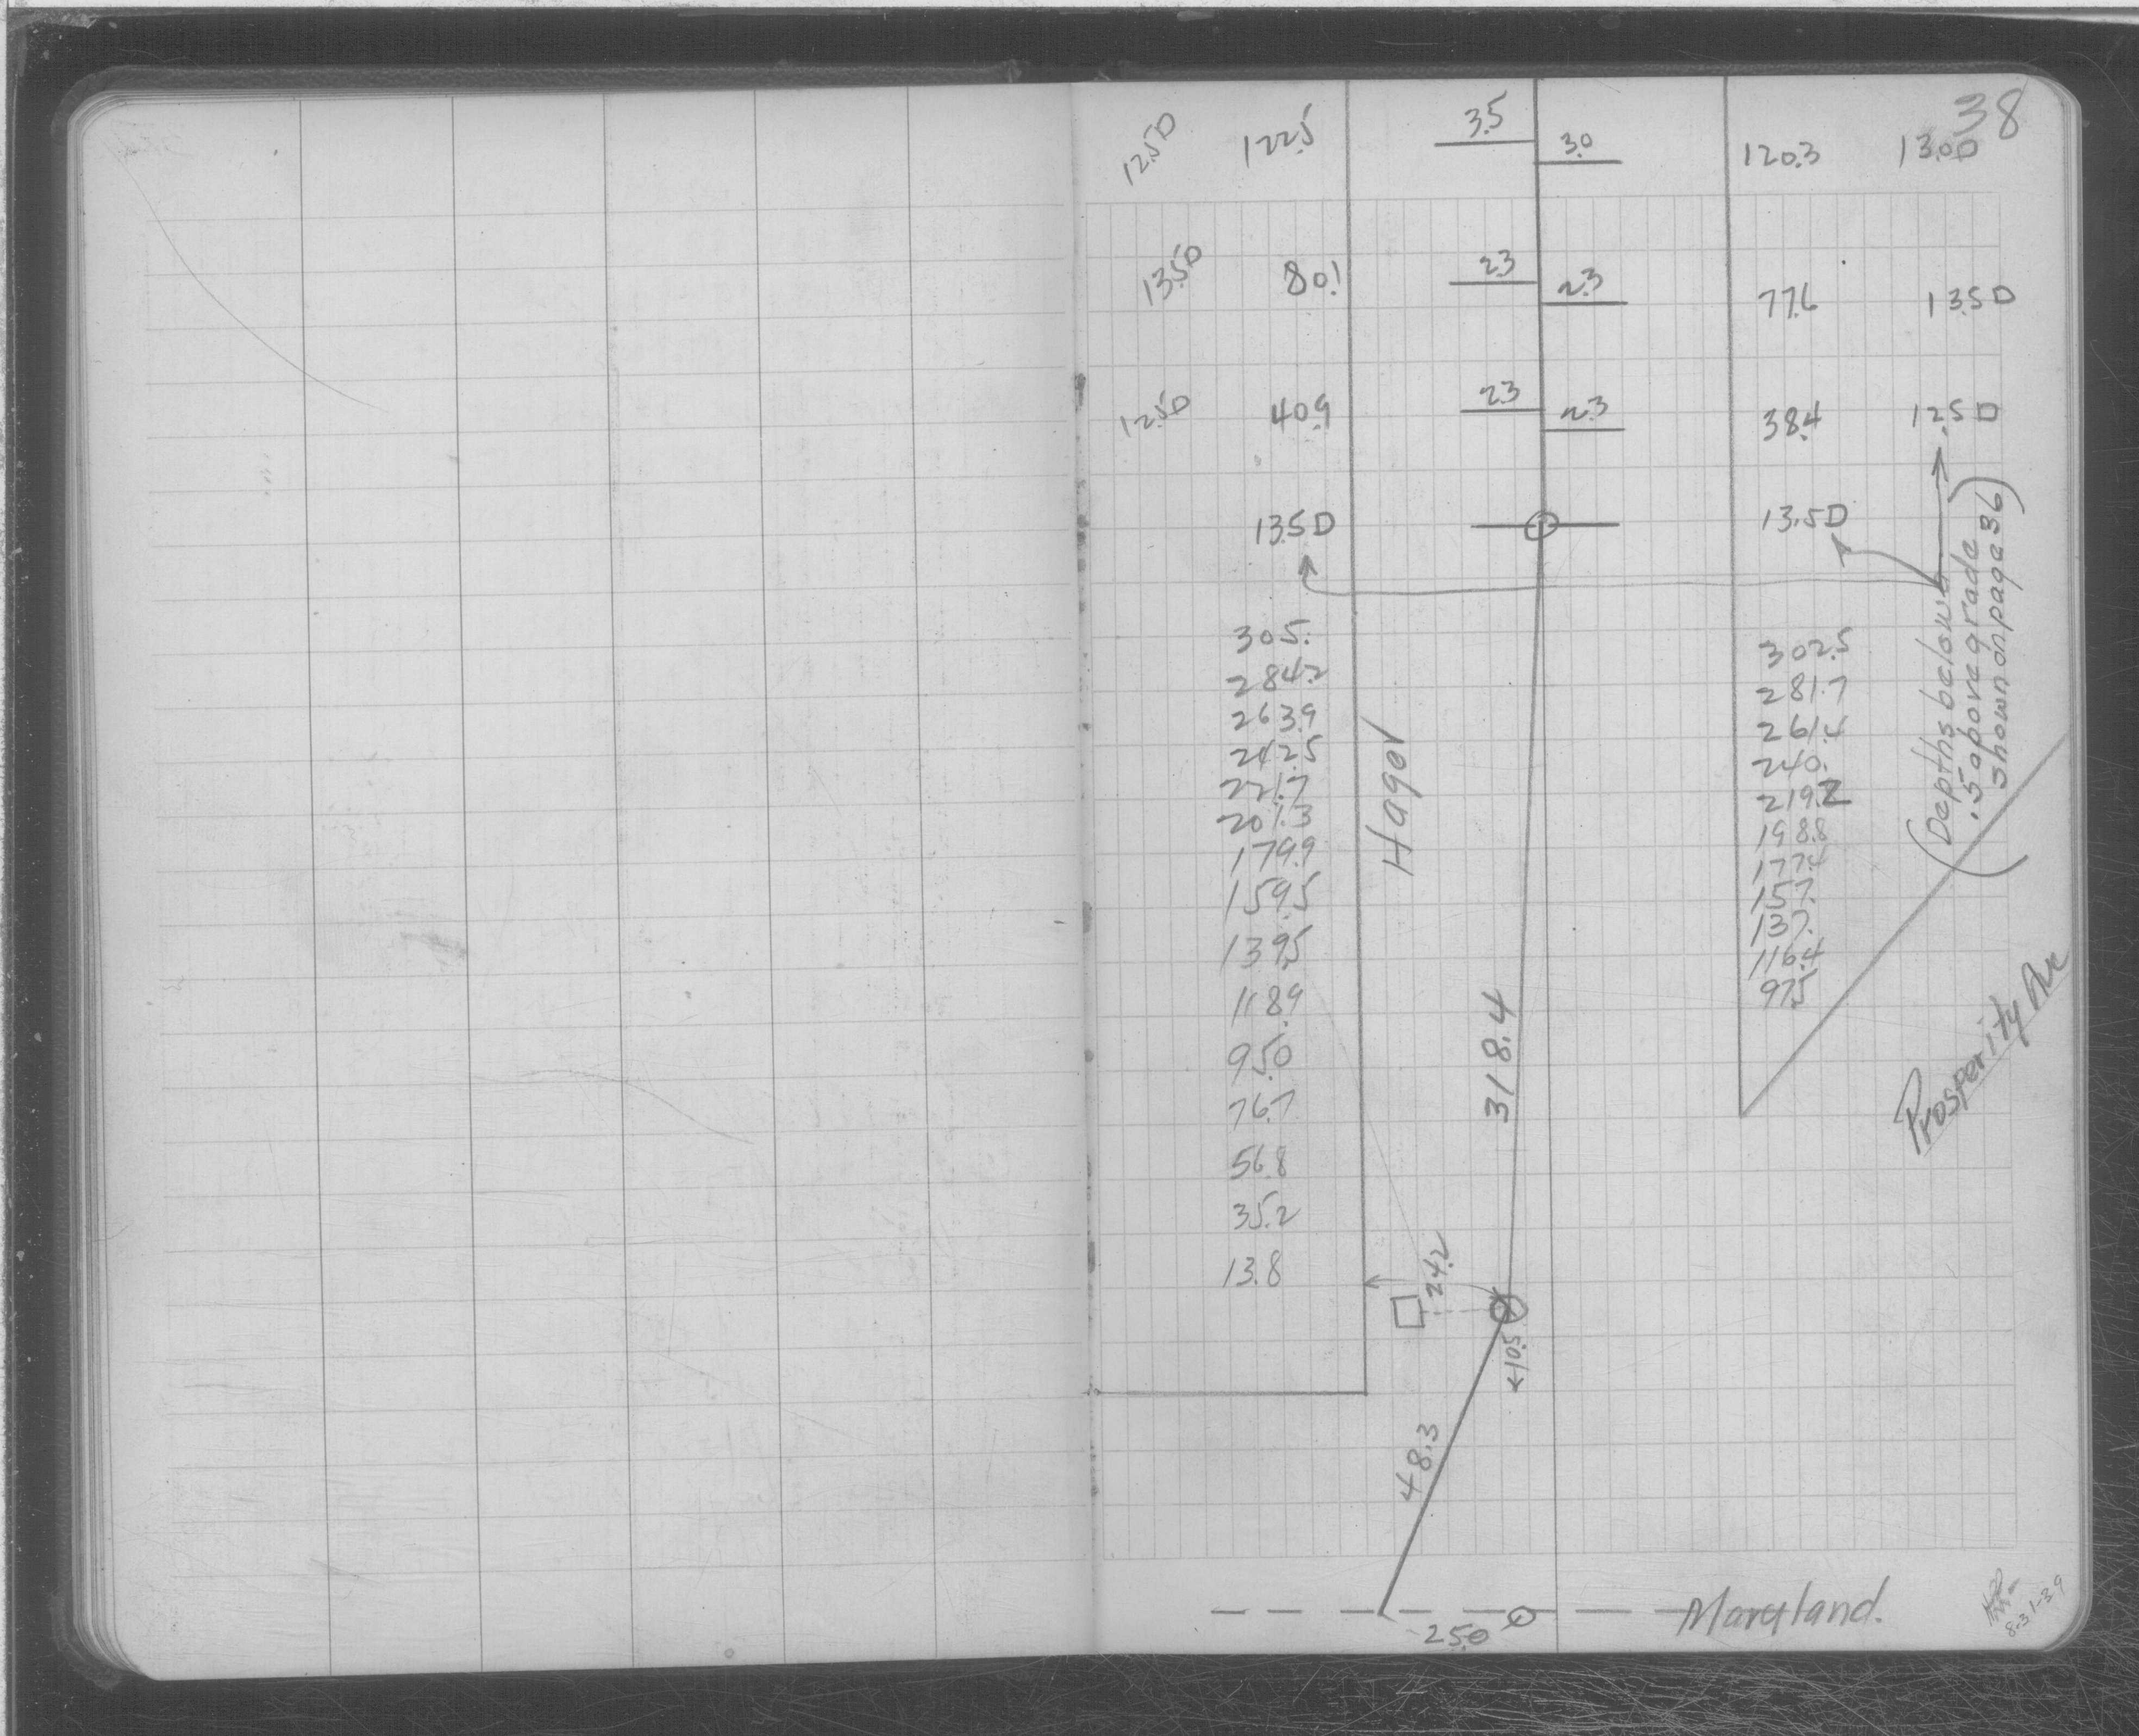 38
12.5D 122.5 3.5 3.0 120.3 13.0D
13.5D 80.1 2.3 2.3 77.6 13.5D
12.5D 40.9 2.3 2.3 38.4 12.5D
13.5D 13.5D
(Depths below
.5 above grade
shown on page 36)
305. 302.5
284.2 281.7
263.9 261.4
242.5 240.
221.7 219.2
201.3 198.8
179.9 177.4
159.5 157.
139.5 137.
118.9 116.4
95.0 97.5
76.7
56.8
35.2
13.8
Hagor
318.4
Prosperity Ave
24.2
10.5
48.3
25.0
Maryland.
8-31-39